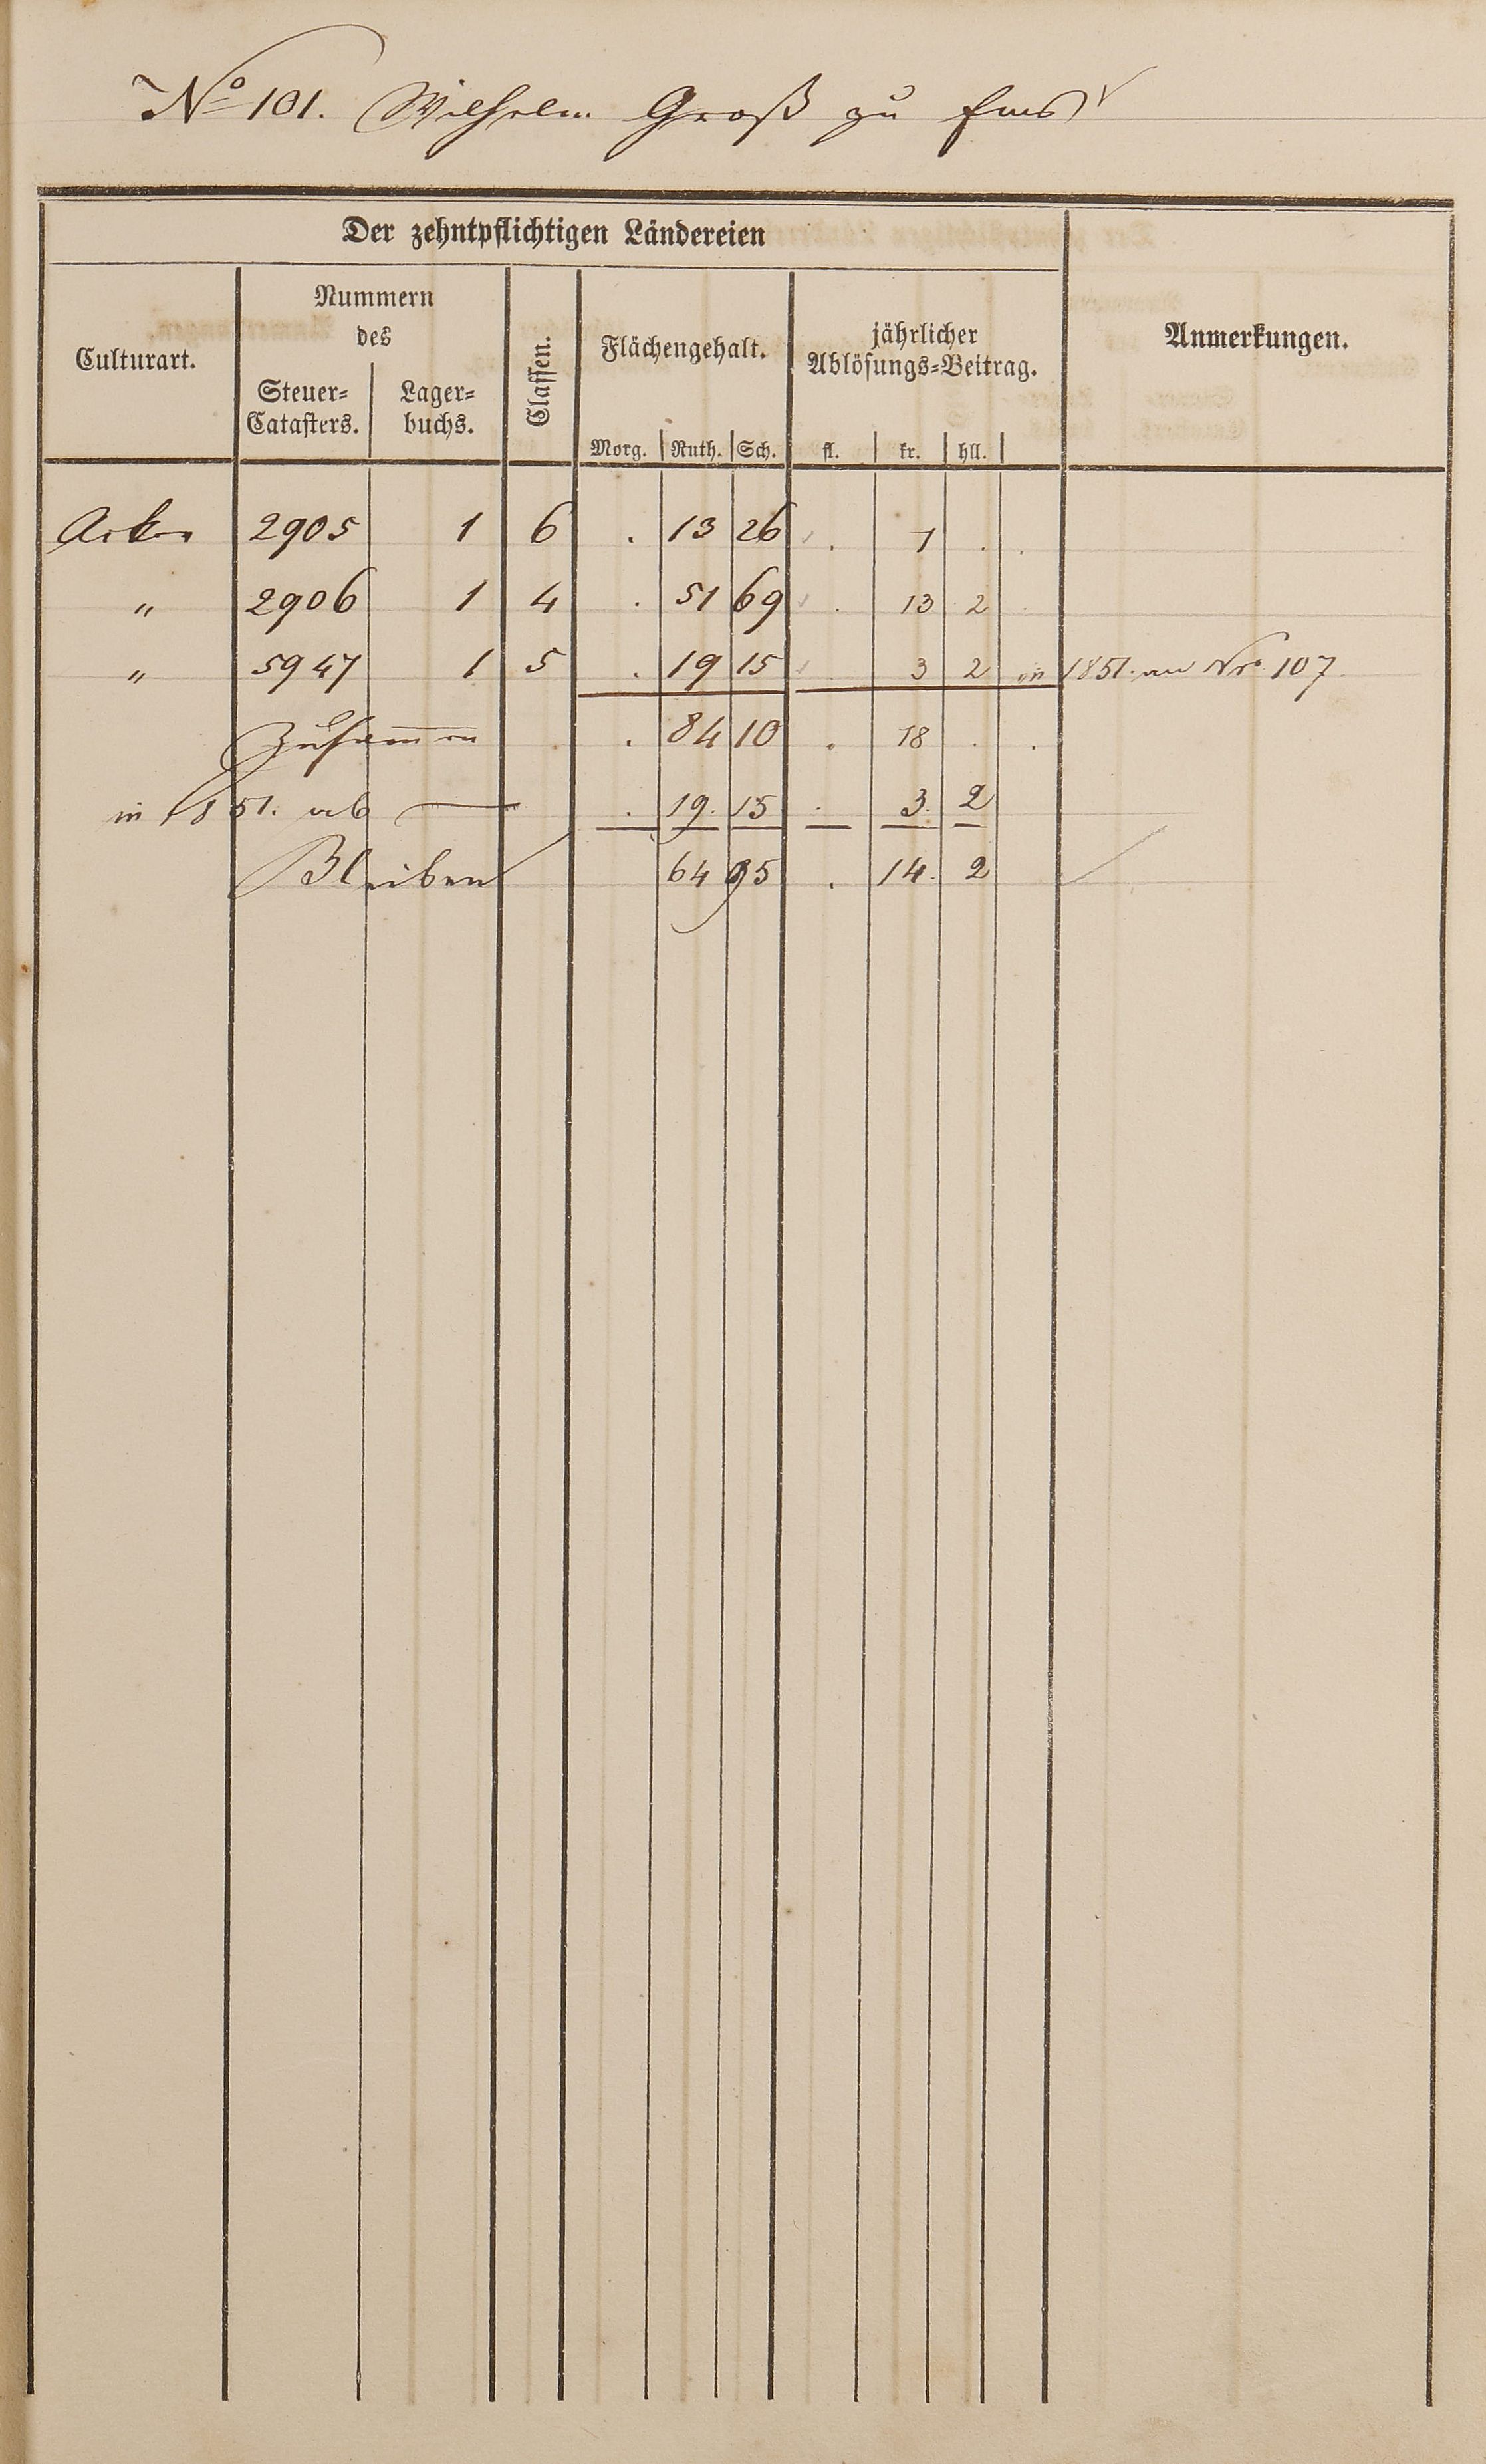 No 101. Wilhelm Groß zu Ems
Der zehntpflichtigen Ländereien
Culturart.
Nummern
des
Steuer=
Catasters.
Lager=
buchs.
Classen.
Flächengehalt.
Morg. Ruth. Sch.
jährlicher
Ablösungs=Beitrag.
fl. kr. hll.
Anmerkungen.
Acker 2905 1 6 . 13 26 . 1 . .
" 2906 1 4 . 51 69 . 13 2 .
" 5947 1 5 . 19 15 3 2 in 1851. an Nro 107
Zusammen . 84 10 . 18 . .
in 1851. ab — . 19. 15 . 3. 2
Bleiben 64 95 . 14. 2